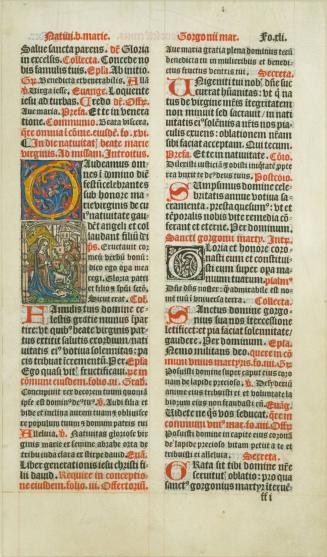 Natiui.b.marie.
Gorgonij mar.
Fo.xli.
Salue sancta parens. v̄. Gloria
in excelsis. Collecta. Concede no
bis famulis tuis. Epla. Ab initio.
Gr. Benedicta et venerabilis. Alla
v̄. Uirga iesse. Euange. Loquente
iesu ad turbas. Credo Offer.
Aue maria. Prefa. Et te in venera
tione. Commemo. Beata viscera.
que omnia i cōmu. eiusdē. fo. xvi.
In die natiuitat beate marie
virginis. Ad missam. Introitus.
Gaudeamus om
nes i domino diē
festū celebrantes
sub honore ma
rie virginis de cu
natiuitate gau
dēt angeli et col
laudant filiū di
ps. Eructauit cor
meū verbū bonū:
dico ego opa mea
regi. Gloria patri
et filio et spūi sctō.
Sicut erat. Col.
Famulis tuis domine ce
lestis gratie munus ipar
tire: vt quib beate virginis par
tus extitit salutis exordium/nati
uitatis ei votiua solennitas: pa
cis tribuat icremētū. Per. Epla
Ego quasi vit fructificaui. pe in
cōmune eiusdem. folio. iii. Grad.
Alleluia. v̄. Natiuitas gloriose vir
ginis marie ex semine abrahe orta de
tribu iuda clara ex stirpe dauid. Euā.
Liber generationis iesu christi fi
lii dauid. Require in conceptio
ne eiusdem. folio. iii. Offertoriū.
Aue maria gratia plena dominus tecū
benedicta tu in mulieribus et benedi
ctus fructus ventris tui. Secreta.
Unigeniti tui nob dne suc
currat hūanitas: vt q na
tus de virgine mris itegritatem
non minuit sed sacrauit: in nati
uitatis eisolēniis a nris nos pia
culis exuens: oblationem nram
sibi faciat acceptam. Qui tecum.
Prefa. Et te in natiuitate. Cōio.
Postcōio.
Sumpsimus domine cele
britatis annue votiua sa
cramenta. presta quesumus: vt et
tēporalis nobis vite remedia cō
ferant et eterne. Per dominum.
Sancti gorgonii marty. Intr.
Gloria et honore coro
nasti eum et constitui
sti eum super opa ma
nuum tuarum. psalm.
Dñe dñs noster: q̄ admirabile est no
men tuū i vniuersa terra. Collecta.
Sanctus domine gorgo
nius sua nos itercessione
letificet: et pia faciat solennitate
gaudere. Per dominum. Epla.
Nemo militans deo. quere in cō
muni vnius martyris. fo. vii. Gr.
Posuisti domine super caput eius coro
nam de lapide precioso. v̄. Desideriū
anime eius tribuisti ei: et voluntate la
biorum eius non fraudasti eū. Euāg.
Uidete ne qs vos seducat. quere in
Posuisti domine in capite eius coronā
de lapide precioso vitam petiit a te et
tribuisti ei alleluia. Secreta.
Grata sit tibi domine nre
seruitut oblatio: pro qua
sanct gorgonius martyr iteruē
ff i